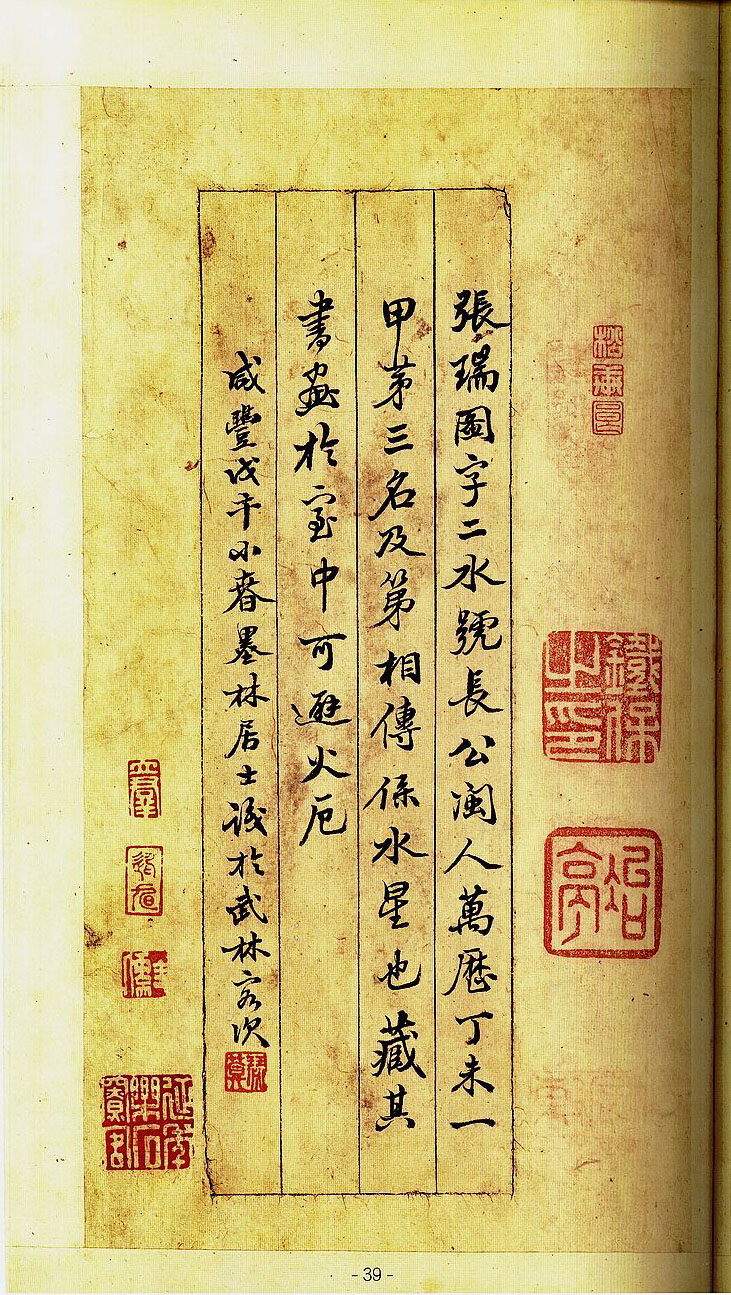 張瑞圖字二水號長公閩人萬歷丁未一
甲第三名及第相傳係水星也藏其
書畫於室中可避火厄
咸豐戊午小春墨林居士識於武林客次
鐵保之印
- 39 -